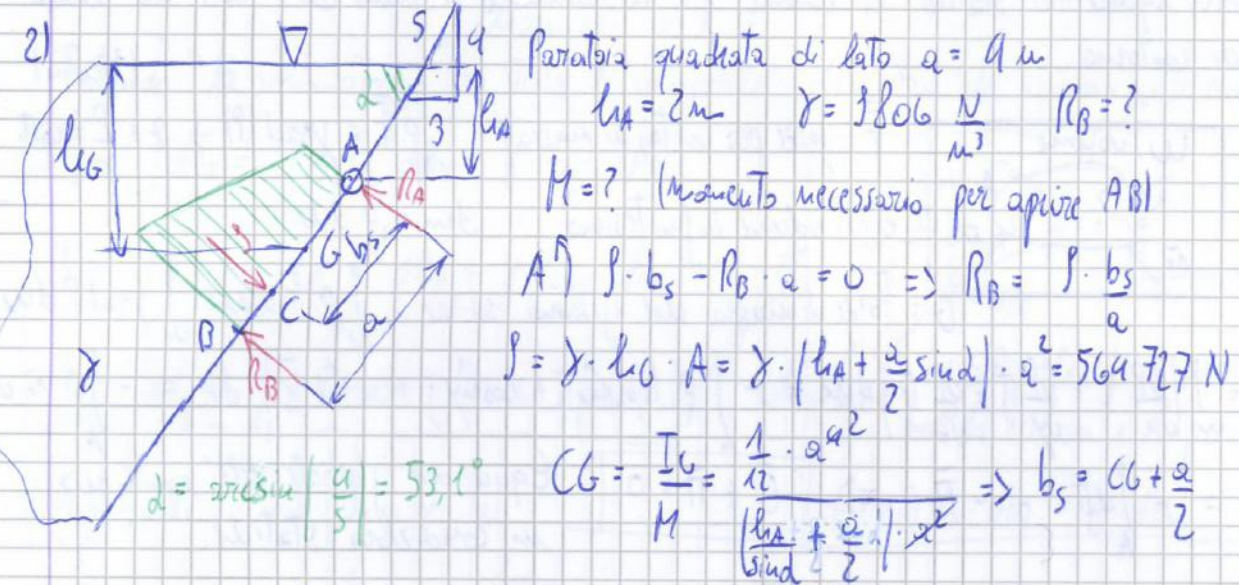 2)
5 4
3
α
h_G
h_A
A
R_A
G b_S
S
C
a
B
R_B
γ
α = arcsin (4/5) = 53,1°
Paratoia quadrata di lato a = 4 m
h_A = 2 m γ = 9806 N/m³ R_B = ?
M = ? (momento necessario per aprire AB)
A↰ S · b_S - R_B · a = 0 => R_B = S · b_S/a
S = γ · h_G · A = γ · (h_A + a/2 sinα) · a² = 564 727 N
CG = I_G/M = (1/12 · a^4 2)/((h_A/sinα + a/2) · a²) => b_S = CG + a/2